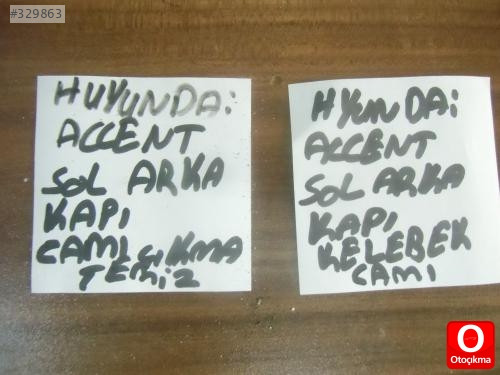 #329863
HUYUNDAi
ACCENT
SOL ARKA
KAPI
CAMI ÇIKMA
TEMiZ
HYUNDAi
ACCENT
SOL ARKA
KAPI
KELEBEK
CAMI
O
Otoçıkma